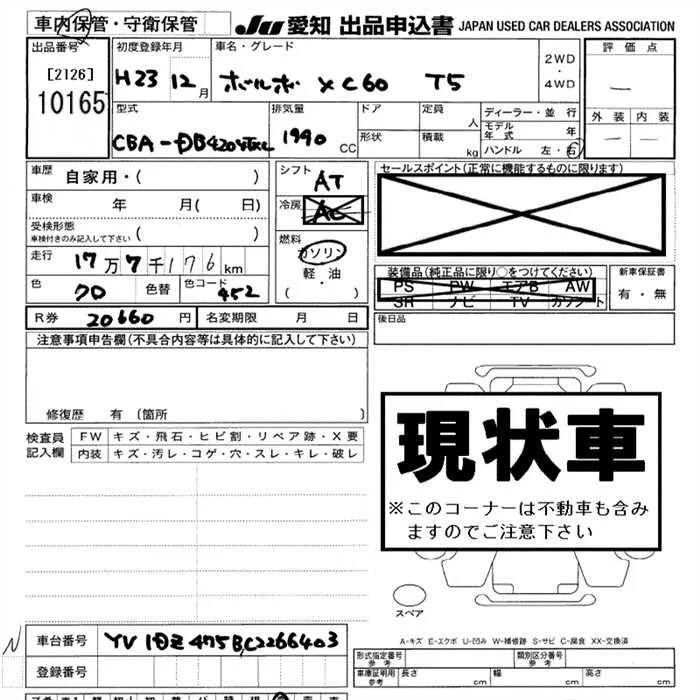 車内保管・守衛保管
JU 愛知 出品申込書 JAPAN USED CAR DEALERS ASSOCIATION
出品番号 初度登録年月 車名・グレード 評価点
[2126] H23 12月 ボルボ XC60 T5 2WD・4WD
10165 外装 内装
型式 排気量 ドア 定員 人 ディーラー・並行
モデル年式 年
1990 CC 形状 積載 kg ハンドル 左・右
車歴 自家用・( ) シフト AT セールスポイント(正常に機能するものに限ります)
車検 年 月( 日) 冷房 AC
受検形態
車検付きのみ記入して下さい ( ) 燃料 ガソリン
走行 17万7千176km 軽・油 装備品(純正品に限り○をつけてください) 新車保証書
( ) PS PW エアB AW 有・無
色 色替 色コード 452 SR ナビ TV カワシート
R券 20660円 名変期限 月 日 後日品
注意事項申告欄(不具合内容等は具体的に記入して下さい)
修復歴 有 (箇所
検査員 FW キズ・飛石・ヒビ割・リペア跡・X要
記入欄 内装 キズ・汚レ・コゲ・穴・スレ・キレ・破レ
現状車
※このコーナーは不動車も含み
ますのでご注意下さい
スペア
A-キズ E-エクボ U-凹み W-補修跡 S-サビ C-腐食 XX-交換済
車台番号
登録番号
形式指定番号 参考 類別区分番号 参考
車庫証明用 参考 長さ cm 幅 cm 高さ cm